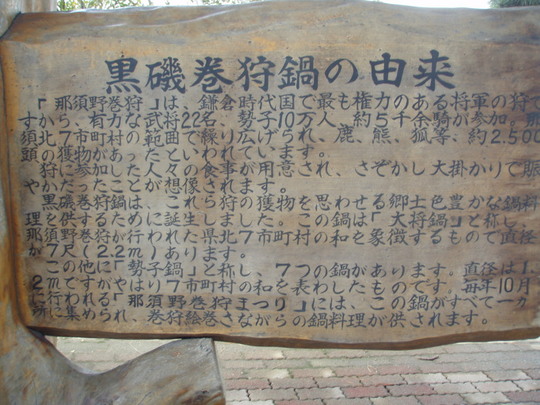 黒磯巻狩鍋の由来
「那須野巻狩」は、鎌倉時代国で最も権力のある将軍の狩で
すから、有力な武将22名、勢子10万人、約5千余騎が参加。那
須北7市町村の範囲で繰り広げられ、鹿、熊、狐等、約2.500
頭の獲物があったといわれています。
狩に参加した人々の食事が用意され、さぞかし大掛かりで賑
やかだったことが想像されます。
黒磯巻狩鍋は、これら狩の獲物を思わせる郷土色豊かな鍋料
理を供するために誕生しました。この鍋は「大将鍋」と称し、
那須野巻狩が行われた県北7市町村の和を象徴するもので直径
が7尺(2.2m)あります。
この他に「勢子鍋」と称し、7つの鍋があります。直径は1.
2mですがやはり7市町村の和を表わしたものです。毎年10月
に行われる「那須野巻狩まつり」には、この鍋がすべて一カ
所に集められ、巻狩絵巻さながらの鍋料理が供されます。